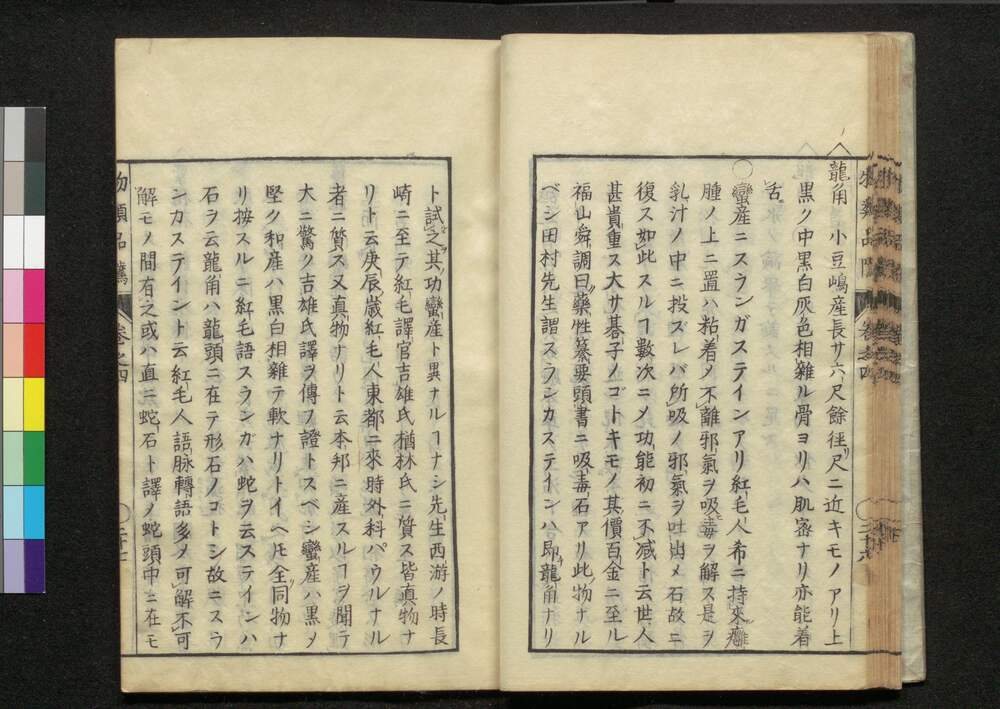 龍角 小豆嶋産長サ六尺餘徑尺ニ近キモノアリ上
黒ク中黒白灰色相雜ル骨ヨリハ肌密ナリ亦能着
舌
〇蠻産ニスランガステインアリ紅毛人希ニ持來癰
腫ノ上ニ置ハ粘着メ不離邪氣ヲ吸毒ヲ解ス是ヲ
乳汁ノ中ニ投ズレバ所吸ノ邪氣ヲ吐出メ石故ニ
復ス如此スルヿ數次ニメ功能初ニ不減ト云世人
甚貴重ス大サ碁子ノゴトキモノ其價百金ニ至ル
福山舜調曰藥性纂要頭書ニ吸毒石アリ此物ナル
ベシ田村先生謂スランカステインハ即龍角ナリ
ト試之其功蠻産ト異ナルヿナシ先生西游ノ時長
崎ニ至テ紅毛譯官吉雄氏楢林氏ニ質ス皆真物ナ
リト云庚辰歳紅毛人東都ニ來時外科パウルナル
者ニ質ス又真物ナリト云本邦ニ産スルヿヲ聞テ
大ニ驚ク吉雄氏譯ヲ傳フ證トスベシ蠻産ハ黒メ
堅ク和産ハ黒白相雜テ軟ナリトイヘ𪜈全同物ナ
リ按スルニ紅毛語スランガハ蛇ヲ云ステインハ
石ヲ云龍角ハ龍頭ニ在テ形石ノコトシ故ニスラ
ンカステイント云紅毛人語脉轉語多メ可解不可
解モノ間有之或ハ直ニ蛇石ト譯メ蛇頭中ニ在モ
物類品隲 卷之四